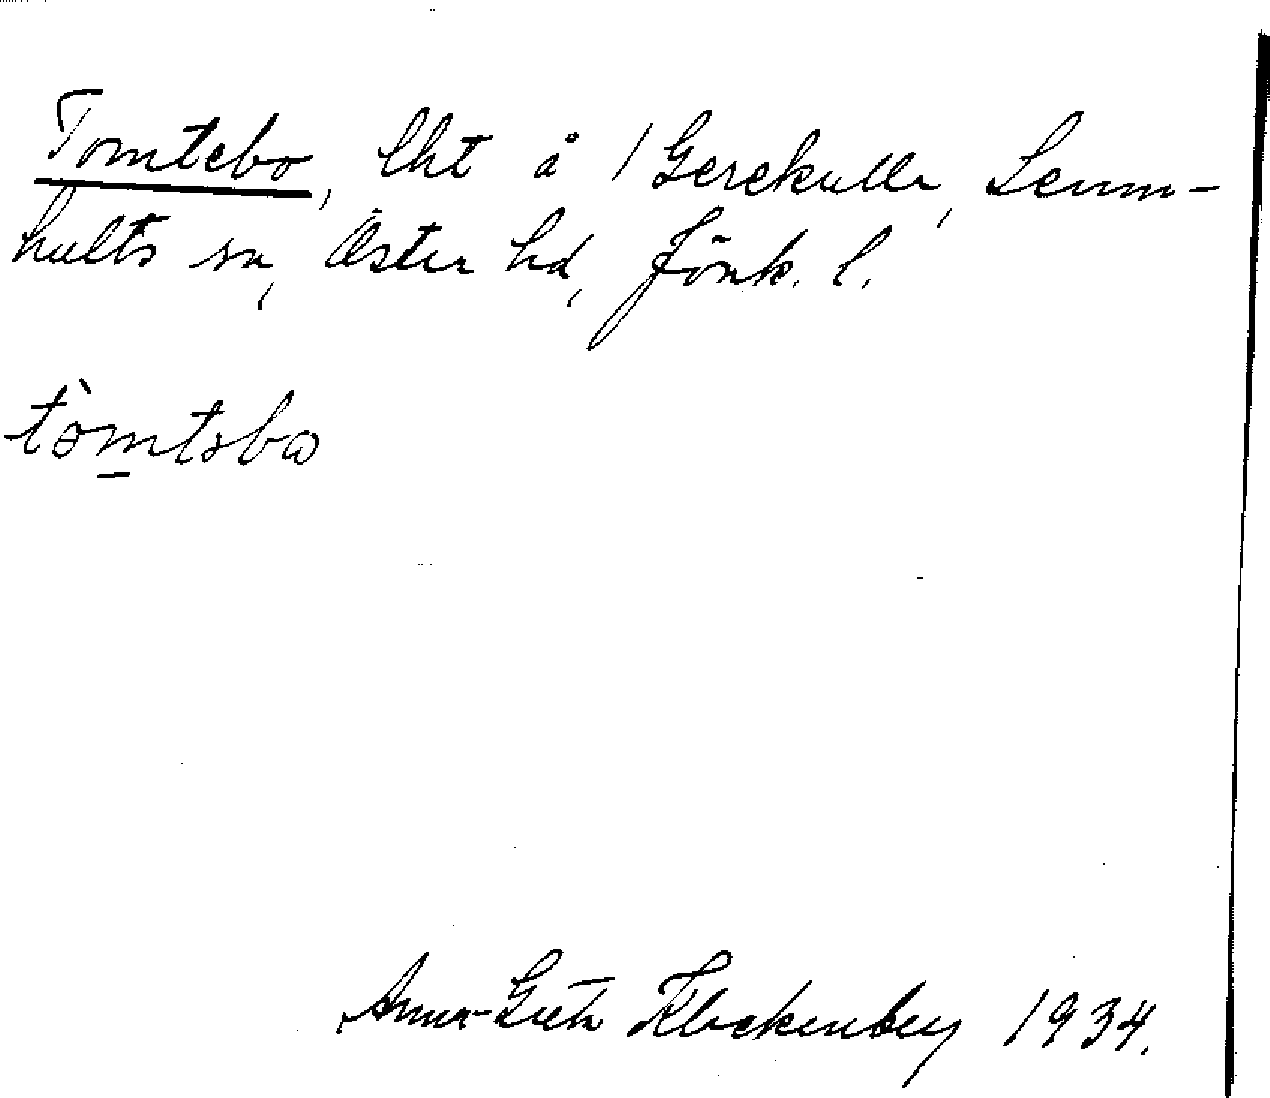 Tomtebo, lht å /Gerekulla, Lemn-
hults sn, Öster hd, Jönk. l.
tòmtəbω
Anna-Greta Klockenberg 1934.